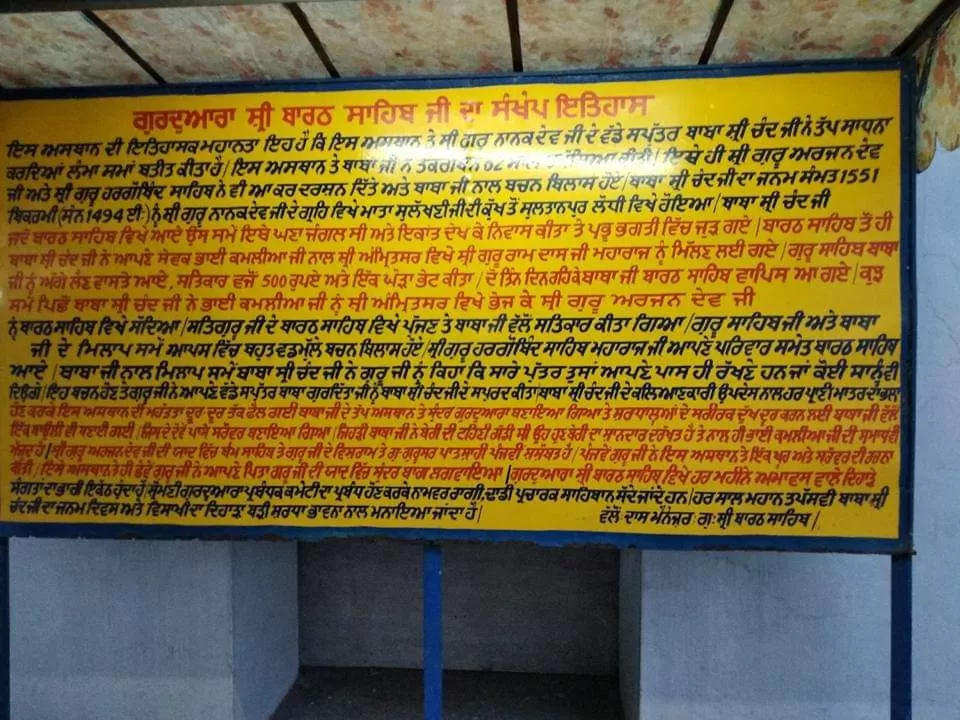 ਗੁਰਦੁਆਰਾ ਸ੍ਰੀ ਬਾਰਠ ਸਾਹਿਬ ਜੀ ਦਾ ਸੰਖੇਪ ਇਤਿਹਾਸ
ਇਸ ਅਸਥਾਨ ਦੀ ਇਤਿਹਾਸਕ ਮਹਾਨਤਾ ਇਹ ਹੈ ਕਿ ਇਸ ਅਸਥਾਨ ਤੇ ਸ੍ਰੀ ਗੁਰੂ ਨਾਨਕ ਦੇਵ ਜੀ ਦੇ ਵੱਡੇ ਸਪੁੱਤਰ ਬਾਬਾ ਸ੍ਰੀ ਚੰਦ ਜੀ ਨੇ ਤੱਪ ਸਾਧਨਾ
ਕਰਦਿਆਂ ਲੰਮਾ ਸਮਾਂ ਬਤੀਤ ਕੀਤਾ ਹੈ। ਇਸ ਅਸਥਾਨ ਤੇ ਬਾਬਾ ਜੀ ਨੇ ਤਕਰੀਬਨ 62 ਸਾਲ ਕੀਤੀ। ਇਥੇ ਹੀ ਸ੍ਰੀ ਗੁਰੂ ਅਰਜਨ ਦੇਵ
ਜੀ ਅਤੇ ਸ੍ਰੀ ਗੁਰੂ ਹਰਗੋਬਿੰਦ ਸਾਹਿਬ ਨੇ ਵੀ ਆ ਕਰ ਦਰਸ਼ਨ ਦਿੱਤੇ ਅਤੇ ਬਾਬਾ ਜੀ ਨਾਲ ਬਚਨ ਬਿਲਾਸ ਹੋਏ। ਬਾਬਾ ਸ੍ਰੀ ਚੰਦ ਜੀ ਦਾ ਜਨਮ ਸੰਮਤ 1551
ਬਿਕਰਮੀ (ਸੰਨ 1494 ਈ:) ਨੂੰ ਸ੍ਰੀ ਗੁਰੂ ਨਾਨਕ ਦੇਵ ਜੀ ਦੇ ਗ੍ਰਹਿ ਵਿਖੇ ਮਾਤਾ ਸੁਲੱਖਣੀ ਜੀ ਦੀ ਕੁੱਖ ਤੋਂ ਸੁਲਤਾਨਪੁਰ ਲੋਧੀ ਵਿਖੇ ਹੋਇਆ। ਬਾਬਾ ਸ੍ਰੀ ਚੰਦ ਜੀ
ਜਦੋਂ ਬਾਰਠ ਸਾਹਿਬ ਵਿਖੇ ਆਏ ਉਸ ਸਮੇਂ ਇਥੇ ਘਣਾ ਜੰਗਲ ਸੀ ਅਤੇ ਇਕਾਂਤ ਦੇਖ ਕੇ ਨਿਵਾਸ ਕੀਤਾ ਤੇ ਪ੍ਰਭੂ ਭਗਤੀ ਵਿੱਚ ਜੁੜ ਗਏ। ਬਾਰਠ ਸਾਹਿਬ ਤੋਂ ਹੀ
ਬਾਬਾ ਸ੍ਰੀ ਚੰਦ ਜੀ ਨੇ ਆਪਣੇ ਸੇਵਕ ਭਾਈ ਕਮਲੀਆ ਜੀ ਨਾਲ ਸ੍ਰੀ ਅੰਮ੍ਰਿਤਸਰ ਵਿਖੇ ਸ੍ਰੀ ਗੁਰੂ ਰਾਮ ਦਾਸ ਜੀ ਮਹਾਰਾਜ ਨੂੰ ਮਿਲਣ ਲਈ ਗਏ। ਗੁਰੂ ਸਾਹਿਬ ਬਾਬਾ
ਜੀ ਨੂੰ ਅੱਗੇ ਲੈਣ ਵਾਸਤੇ ਆਏ, ਸਤਿਕਾਰ ਵਜੋਂ 500 ਰੁਪਏ ਅਤੇ ਇੱਕ ਘੋੜਾ ਭੇਟ ਕੀਤਾ। ਦੋ ਤਿੰਨ ਦਿਨ ਰਹਿਕੇ ਬਾਬਾ ਜੀ ਬਾਰਠ ਸਾਹਿਬ ਵਾਪਿਸ ਆ ਗਏ। ਕੁਝ
ਸਮੇਂ ਪਿਛੋਂ ਬਾਬਾ ਸ੍ਰੀ ਚੰਦ ਜੀ ਨੇ ਭਾਈ ਕਮਲੀਆ ਜੀ ਨੂੰ ਸ੍ਰੀ ਅੰਮ੍ਰਿਤਸਰ ਵਿਖੇ ਭੇਜ ਕੇ ਸ੍ਰੀ ਗੁਰੂ ਅਰਜਨ ਦੇਵ ਜੀ
ਨੂੰ ਬਾਰਠ ਸਾਹਿਬ ਵਿਖੇ ਸੱਦਿਆ। ਸਤਿਗੁਰੂ ਜੀ ਦੇ ਬਾਰਠ ਸਾਹਿਬ ਵਿਖੇ ਪੁੱਜਣ ਤੇ ਬਾਬਾ ਜੀ ਵੱਲੋਂ ਸਤਿਕਾਰ ਕੀਤਾ ਗਿਆ। ਗੁਰੂ ਸਾਹਿਬ ਜੀ ਅਤੇ ਬਾਬਾ
ਜੀ ਦੇ ਮਿਲਾਪ ਸਮੇਂ ਆਪਸ ਵਿੱਚ ਬਹੁਤ ਵਡਮੁੱਲੇ ਬਚਨ ਬਿਲਾਸ ਹੋਏ। ਸ੍ਰੀ ਗੁਰੂ ਹਰਗੋਬਿੰਦ ਸਾਹਿਬ ਮਹਾਰਾਜ ਜੀ ਆਪਣੇ ਪਰਿਵਾਰ ਸਮੇਤ ਬਾਰਠ ਸਾਹਿਬ
ਆਏ। ਬਾਬਾ ਜੀ ਨਾਲ ਮਿਲਾਪ ਸਮੇਂ ਬਾਬਾ ਸ੍ਰੀ ਚੰਦ ਜੀ ਨੇ ਗੁਰੂ ਜੀ ਨੂੰ ਕਿਹਾ ਕਿ ਸਾਰੇ ਪੁੱਤਰ ਤੁਸਾਂ ਆਪਣੇ ਪਾਸ ਹੀ ਰੱਖਣੇ ਹਨ ਜਾਂ ਕੋਈ ਸਾਨੂੰ ਵੀ
ਦਿਉਗੇ। ਇਹ ਬਚਨ ਹੋਣ ਤੇ ਗੁਰੂ ਜੀ ਨੇ ਆਪਣੇ ਵੱਡੇ ਸਪੁੱਤਰ ਬਾਬਾ ਗੁਰਦਿੱਤਾ ਜੀ ਨੂੰ ਬਾਬਾ ਸ੍ਰੀ ਚੰਦ ਜੀ ਦੇ ਸਪੁਰਦ ਕੀਤਾ। ਬਾਬਾ ਸ੍ਰੀ ਚੰਦ ਜੀ ਦੇ ਕਲਿਆਣਕਾਰੀ ਉਪਦੇਸ਼ ਨਾਲ ਹਰ ਪ੍ਰਾਣੀ ਮਾਤਰ ਦਾ ਭਲਾ
ਹੋਣ ਕਰਕੇ ਇਸ ਅਸਥਾਨ ਦੀ ਮਹੱਤਤਾ ਦੂਰ-ਦੂਰ ਤੱਕ ਫੈਲ ਗਈ ਬਾਬਾ ਜੀ ਦੇ ਤੱਪ ਅਸਥਾਨ ਤੇ ਸੁੰਦਰ ਗੁਰਦੁਆਰਾ ਬਣਾਇਆ ਗਿਆ ਅਤੇ ਸ਼ਰਧਾਲੂਆਂ ਦੇ ਸਰੀਰਕ ਦੁੱਖ ਦੂਰ ਕਰਨ ਲਈ ਬਾਬਾ ਜੀ ਵੱਲੋਂ
ਇੱਕ ਬਾਉਲੀ ਵੀ ਬਣਾਈ ਗਈ। ਜਿਸ ਦੇ ਦੋਵੇਂ ਪਾਸੇ ਸਰੋਵਰ ਬਣਾਇਆ ਗਿਆ। ਜਿਹੜੀ ਬਾਬਾ ਜੀ ਨੇ ਬੇਰੀ ਦੀ ਟਹਿਣੀ ਗੱਡੀ ਸੀ ਉਹ ਹੁਣ ਬੇਰੀ ਦਾ ਸ਼ਾਨਦਾਰ ਦਰੱਖਤ ਹੈ ਤੇ ਨਾਲ ਹੀ ਭਾਈ ਕਮਲੀਆ ਜੀ ਦੀ ਸਮਾਧ ਵੀ
ਮੌਜੂਦ ਹੈ। ਸ੍ਰੀ ਗੁਰੂ ਅਰਜਨ ਦੇਵ ਜੀ ਦੀ ਯਾਦ ਵਿੱਚ ਥੰਮ ਸਾਹਿਬ ਤੇ ਗੁਰੂ ਜੀ ਦੇ ਵਿਸ਼ਰਾਮ ਤੇ ਗੁ: ਗੁਰੂਸਰ ਪਾਤਸ਼ਾਹੀ ਪੰਜਵੀਂ ਸੁਸ਼ੋਭਤ ਹੈ। ਪੰਜਵੇਂ ਗੁਰੂ ਜੀ ਨੇ ਇਸ ਅਸਥਾਨ ਤੇ ਇੱਕ ਖੂਹ ਅਤੇ ਸਰੋਵਰ ਦੀ ਰਚਨਾ
ਕੀਤੀ। ਇਸੇ ਅਸਥਾਨ ਤੇ ਹੀ ਛੇਵੇਂ ਗੁਰੂ ਜੀ ਨੇ ਆਪਣੇ ਪਿਤਾ ਗੁਰੂ ਜੀ ਦੀ ਯਾਦ ਵਿੱਚ ਸੁੰਦਰ ਬਾਗ ਲਗਵਾਇਆ। ਗੁਰਦੁਆਰਾ ਸ੍ਰੀ ਬਾਰਠ ਸਾਹਿਬ ਵਿਖੇ ਹਰ ਮਹੀਨੇ ਅਮਾਵਸ ਵਾਲੇ ਦਿਹਾੜੇ
ਸੰਗਤਾਂ ਦਾ ਭਾਰੀ ਇਕੱਠ ਹੁੰਦਾ ਹੈ। ਸ਼੍ਰੋਮਣੀ ਗੁਰਦੁਆਰਾ ਪ੍ਰਬੰਧਕ ਕਮੇਟੀ ਦਾ ਪ੍ਰਬੰਧ ਹੋਣ ਕਰਕੇ ਨਾਮਵਰ ਰਾਗੀ, ਢਾਡੀ ਪ੍ਰਚਾਰਕ ਸਾਹਿਬਾਨ ਸੱਦੇ ਜਾਂਦੇ ਹਨ। ਹਰ ਸਾਲ ਮਹਾਨ ਤਪੱਸਵੀ ਬਾਬਾ ਸ੍ਰੀ
ਚੰਦ ਜੀ ਦਾ ਜਨਮ ਦਿਵਸ ਅਤੇ ਵਿਸਾਖੀ ਦਾ ਦਿਹਾੜਾ ਬੜੀ ਸ਼ਰਧਾ ਭਾਵਨਾ ਨਾਲ ਮਨਾਇਆ ਜਾਂਦਾ ਹੈ। ਵੱਲੋਂ ਦਾਸ ਮੈਨੇਜਰ ਗੁ: ਸ੍ਰੀ ਬਾਰਠ ਸਾਹਿਬ।